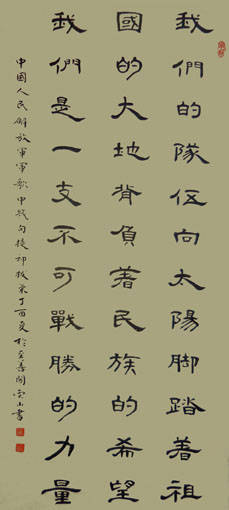 我們的隊伍向太陽脚踏著祖
國的大地背負著民族的希望
我們是一支不可戰勝的力量
中國人民解放軍軍歌中 句 丁酉夏於至善閣 書